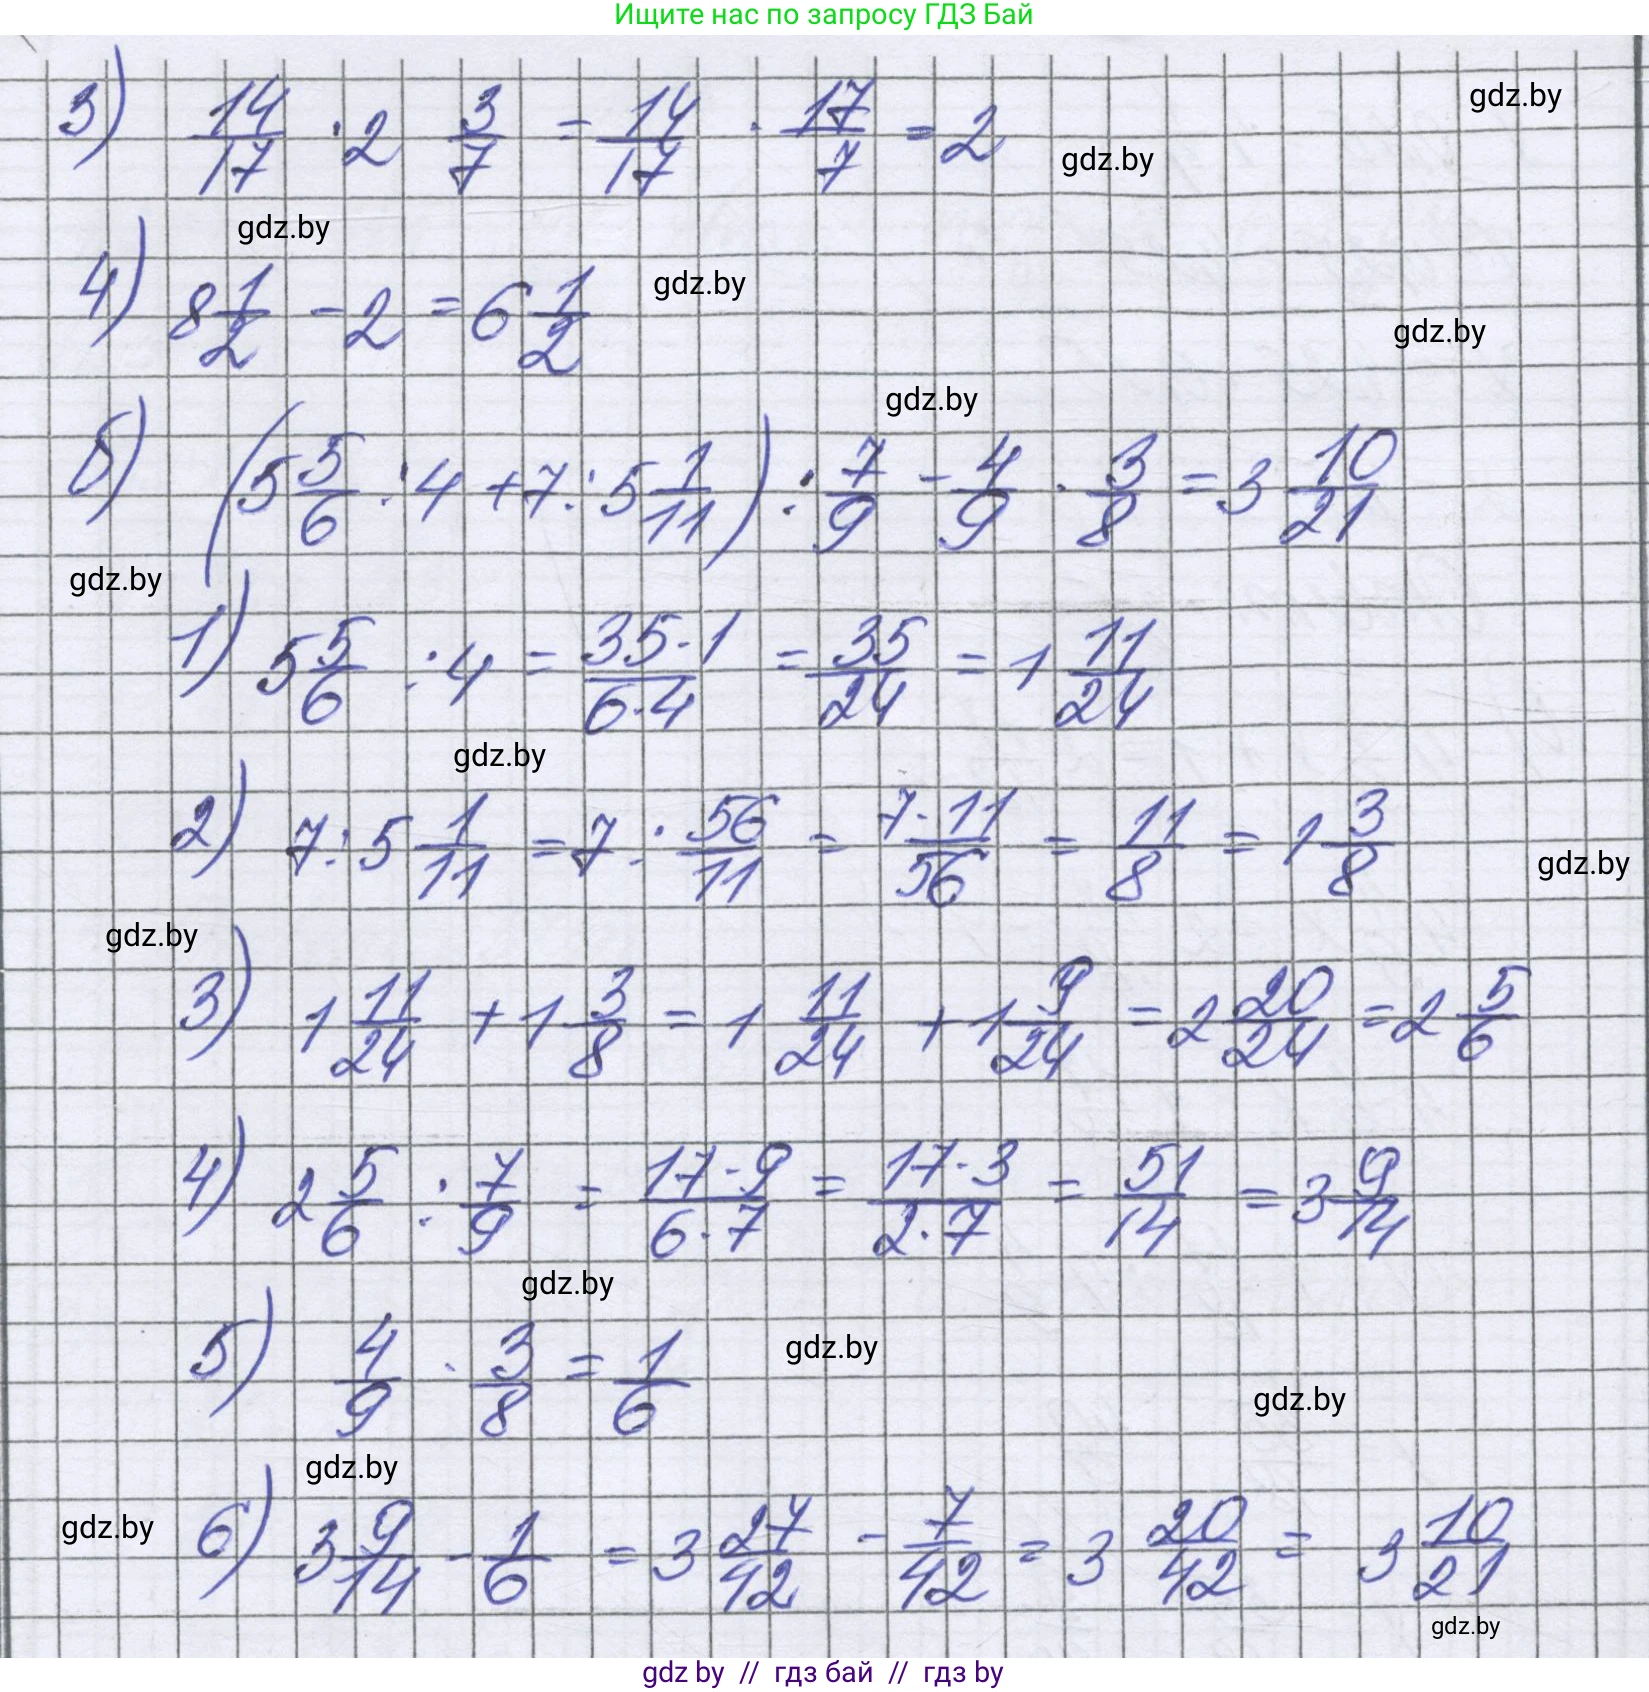 Ищите нас по запросу ГДЗ Бай
3) 14/17 · 2 3/7 = 14/17 · 17/7 = 2
gdz.by
gdz.by
gdz.by
4) 8 1/2 - 2 = 6 1/2
gdz.by
gdz.by
gdz.by
б) (5 5/6 : 4 + 7 : 5 1/11) : 7/9 - 4/9 · 3/8 = 3 10/21
gdz.by
1) 5 5/6 : 4 = 35·1/6·4 = 35/24 = 1 11/24
gdz.by
2) 7 : 5 1/11 = 7 : 56/11 = 7·11/56 = 11/8 = 1 3/8
gdz.by
gdz.by
3) 1 11/24 + 1 3/8 = 1 11/24 + 1 9/24 = 2 20/24 = 2 5/6
4) 2 5/6 : 7/9 = 17·9/6·7 = 17·3/2·7 = 51/14 = 3 9/14
gdz.by
5) 4/9 · 3/8 = 1/6
gdz.by
gdz.by
gdz.by
6) 3 9/14 - 1/6 = 3 27/42 - 7/42 = 3 20/42 = 3 10/21
gdz.by
gdz.by
gdz by // гдз бай // гдз by